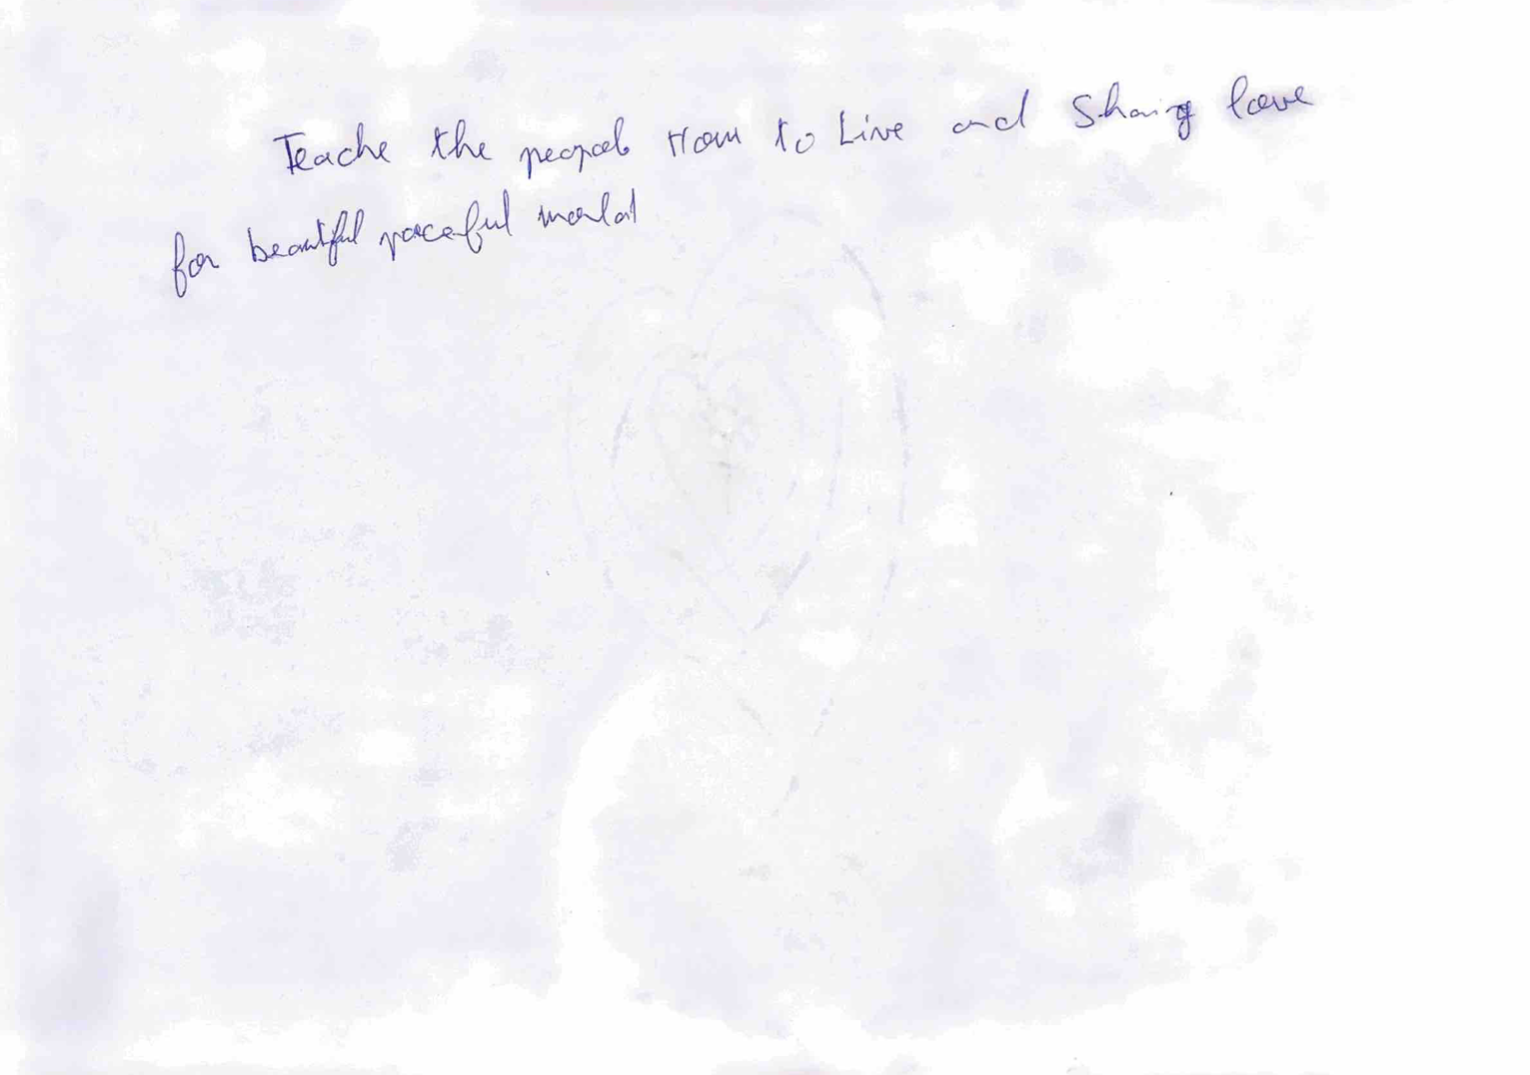 Teache the peopel How to Live and Sharing love
for beautiful peaceful world